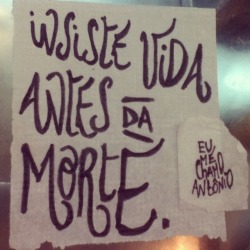 iNSiSTE ViDA
ANTES DA
MORTE.
EU
ME
CHAMO
ANTÔNIO